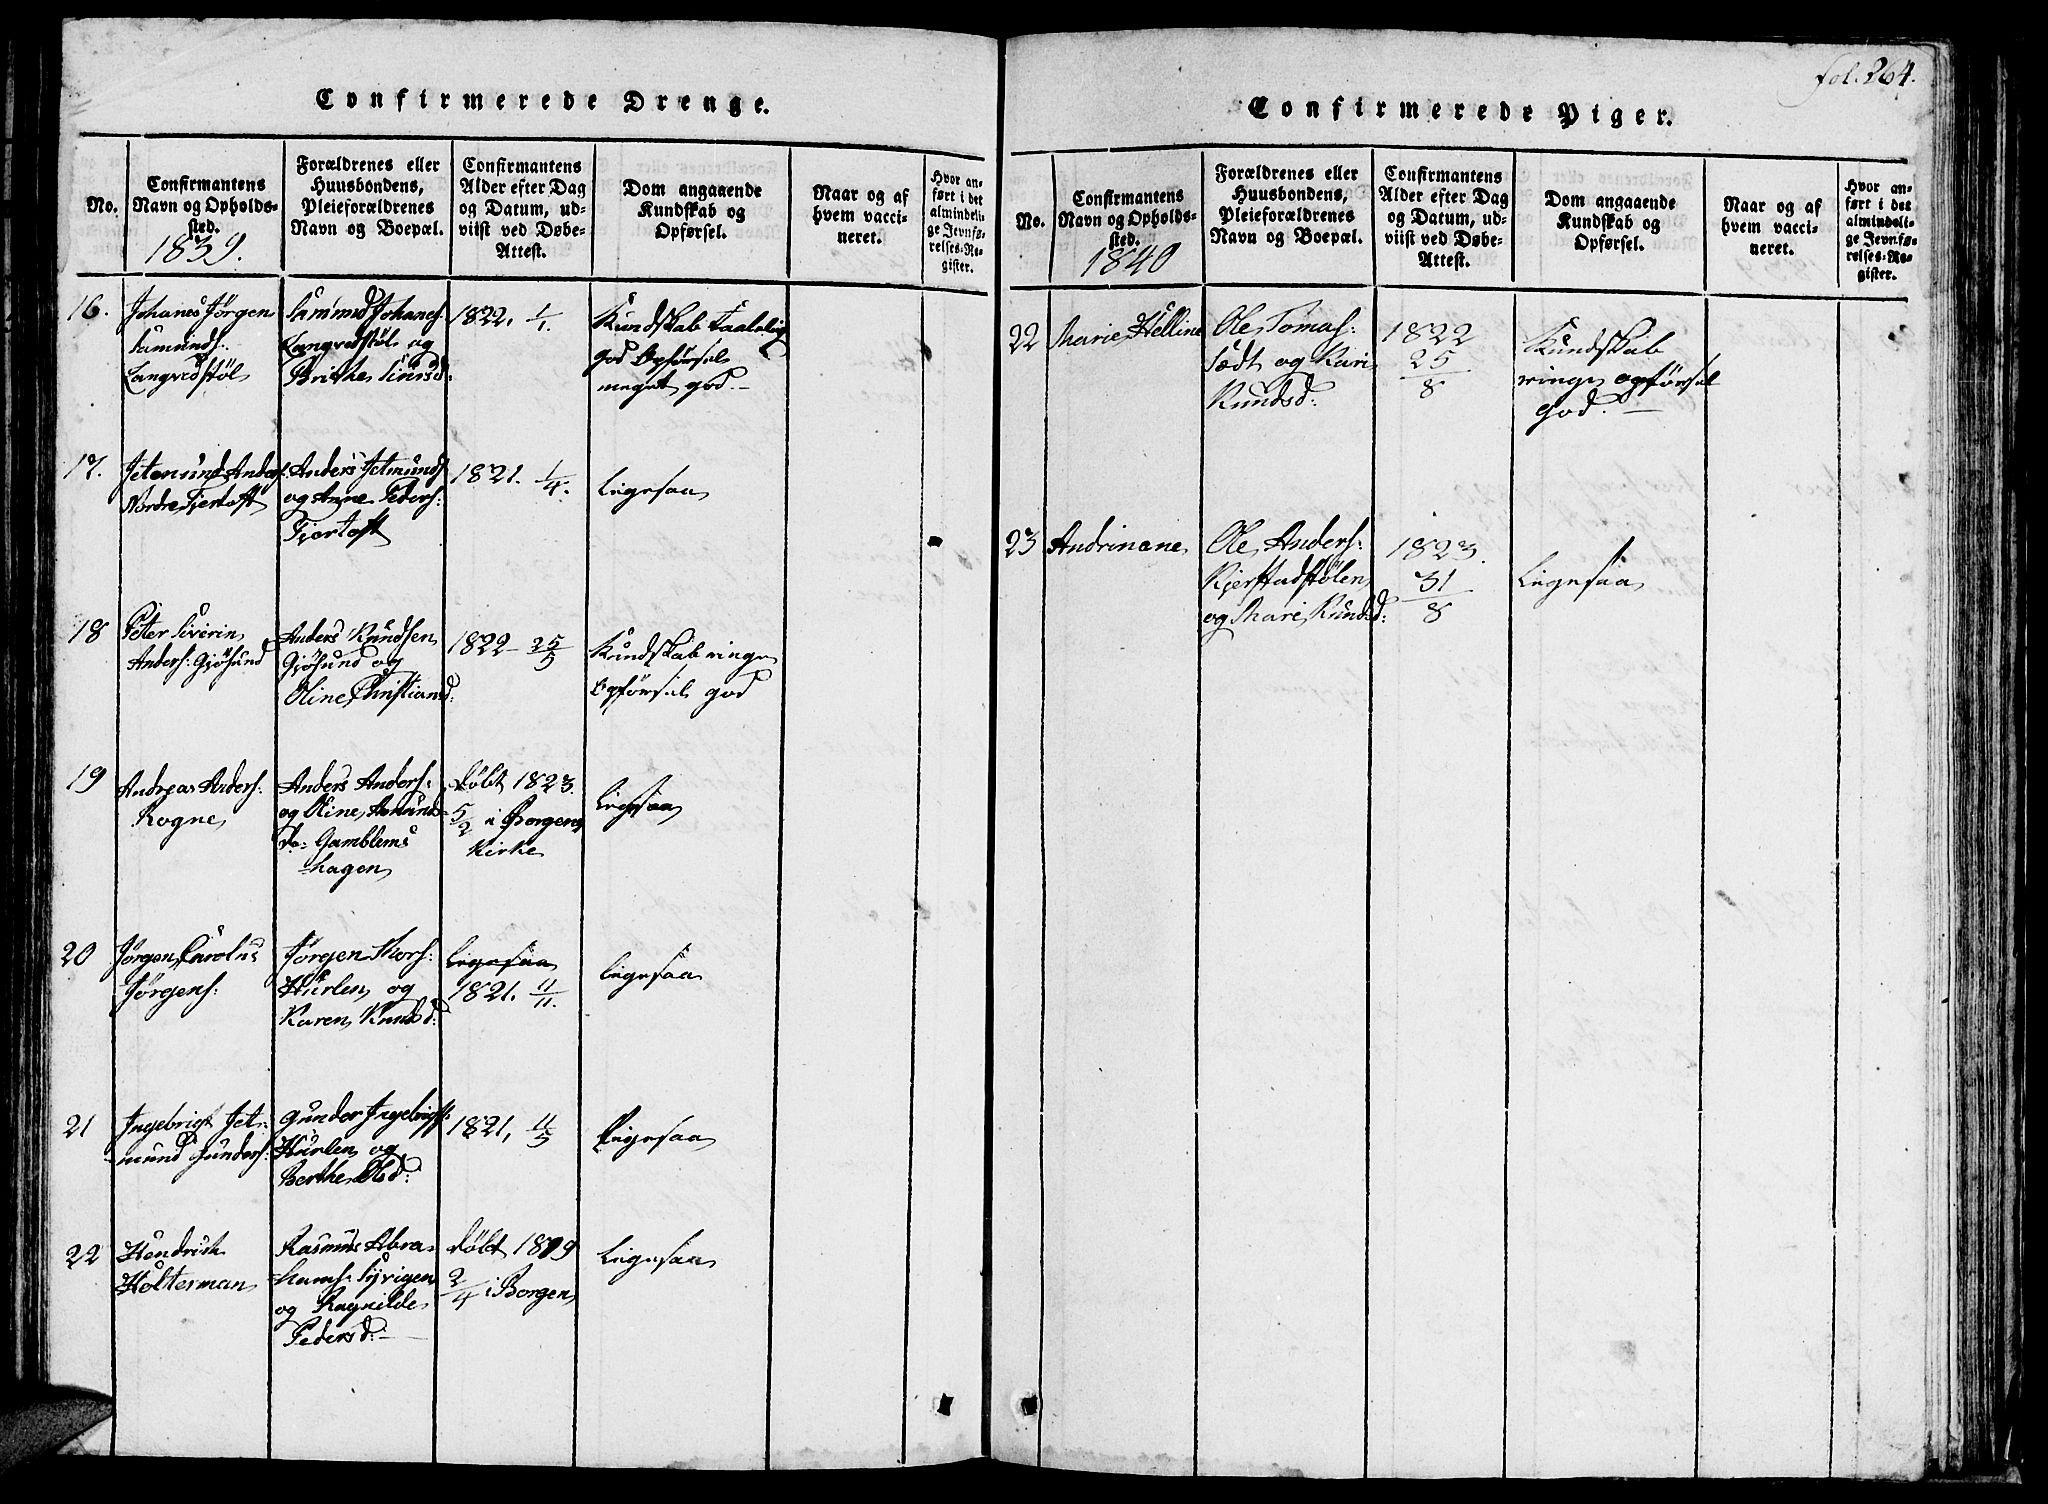 Confirmerede Drenge.
No.
Confirmantens
Navn og Opholds-
sted.
1839.
Forældrenes eller
Huusbondens,
Pleieforældrenes
Navn og Boepæl.
Confirmantens
Alder efter Dag
og Datum, ud-
viist ved Døbe-
Attest.
Dom angaaende
Kundskab og
Opførsel.
Naar og af
hvem vacci-
neret.
Hvor an-
ført i det
almindeli-
ge Jevnfø-
relses-Re-
gister.
16.
Johanes Jørgen
Samunds:
Langvedstøl
Sammud Johanes:
Langvedstøl og
Brithe Siursd:
1822. 1/1.
Kundskab taalelig
god Opførsel
meget god.-
17.
Jetemund Anders:
Nordre Fjertoft
Anders Jetmunds:
og Anne Peders:
Fjortoft
1821. 1/4.
Ligesaa
18
Peter Siverin
Anders: Gjøsund
Anders Knudsen
Gjøsund og
Oline Christiansd:
1822- 25/5
Kundskab ringe
Opførsel god
19
Andreas Anders:
Rogne
Anders Anders:
og Oline Asmund-
da: Gamblems
hagen
døbt 1823.
5/2 i Borgens
Kirke
Ligesaa
20
Jørgen Carolus
Jørgens:
Jørgen Thors:
Hurlen og
Karen Knudsd:
Ligesaa
1821. 11/11.
Ligesaa
21
Ingebrigt Jet-
mund Gunders:
Gunder Ingebrigts:
Hurlen og
Berthe Olsd:
1821, 11/5
Ligesaa
22
Hendrich
Holterman
Rasmus Abra-
hams: Syvigen
og Ragnilde
Pedersd:-
døbt 1819
2/4 i Borgen
Ligesaa
fol. 264.
Confirmerede Piger.
No.
Confirmantens
Navn og Opholds-
sted.
1840
Forældrenes eller
Huusbondens,
Pleieforældrenes
Navn og Boepæl.
Confirmantens
Alder efter Dag
og Datum, ud-
viist ved Døbe-
Attest.
Dom angaaende
Kundskab og
Opførsel.
Naar og af
hvem vacci-
neret.
Hvor an-
ført i det
almindeli-
ge Jevnfø-
relses-Re-
gister.
22
Marie Helline
Ole Tomas:
Sædt og Kari
Knudsd:
1822
25/8
Kundskab
ringe opførsel
god.-
23
Andrinane
Ole Anders:
Kjerstadstølen
og Mari Knudsd:
1823.
31/8
Ligesaa